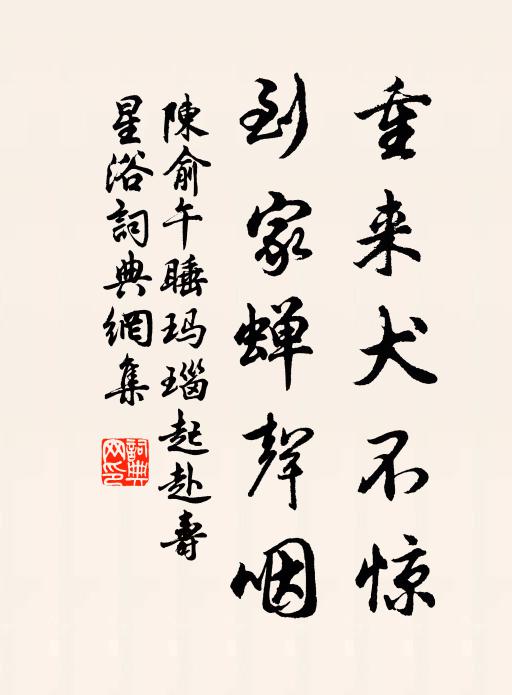 重来犬不惊
到家蝉聲咽
陳俞午睡玛瑙起赴壽
星浴詞典網集
詞典网印